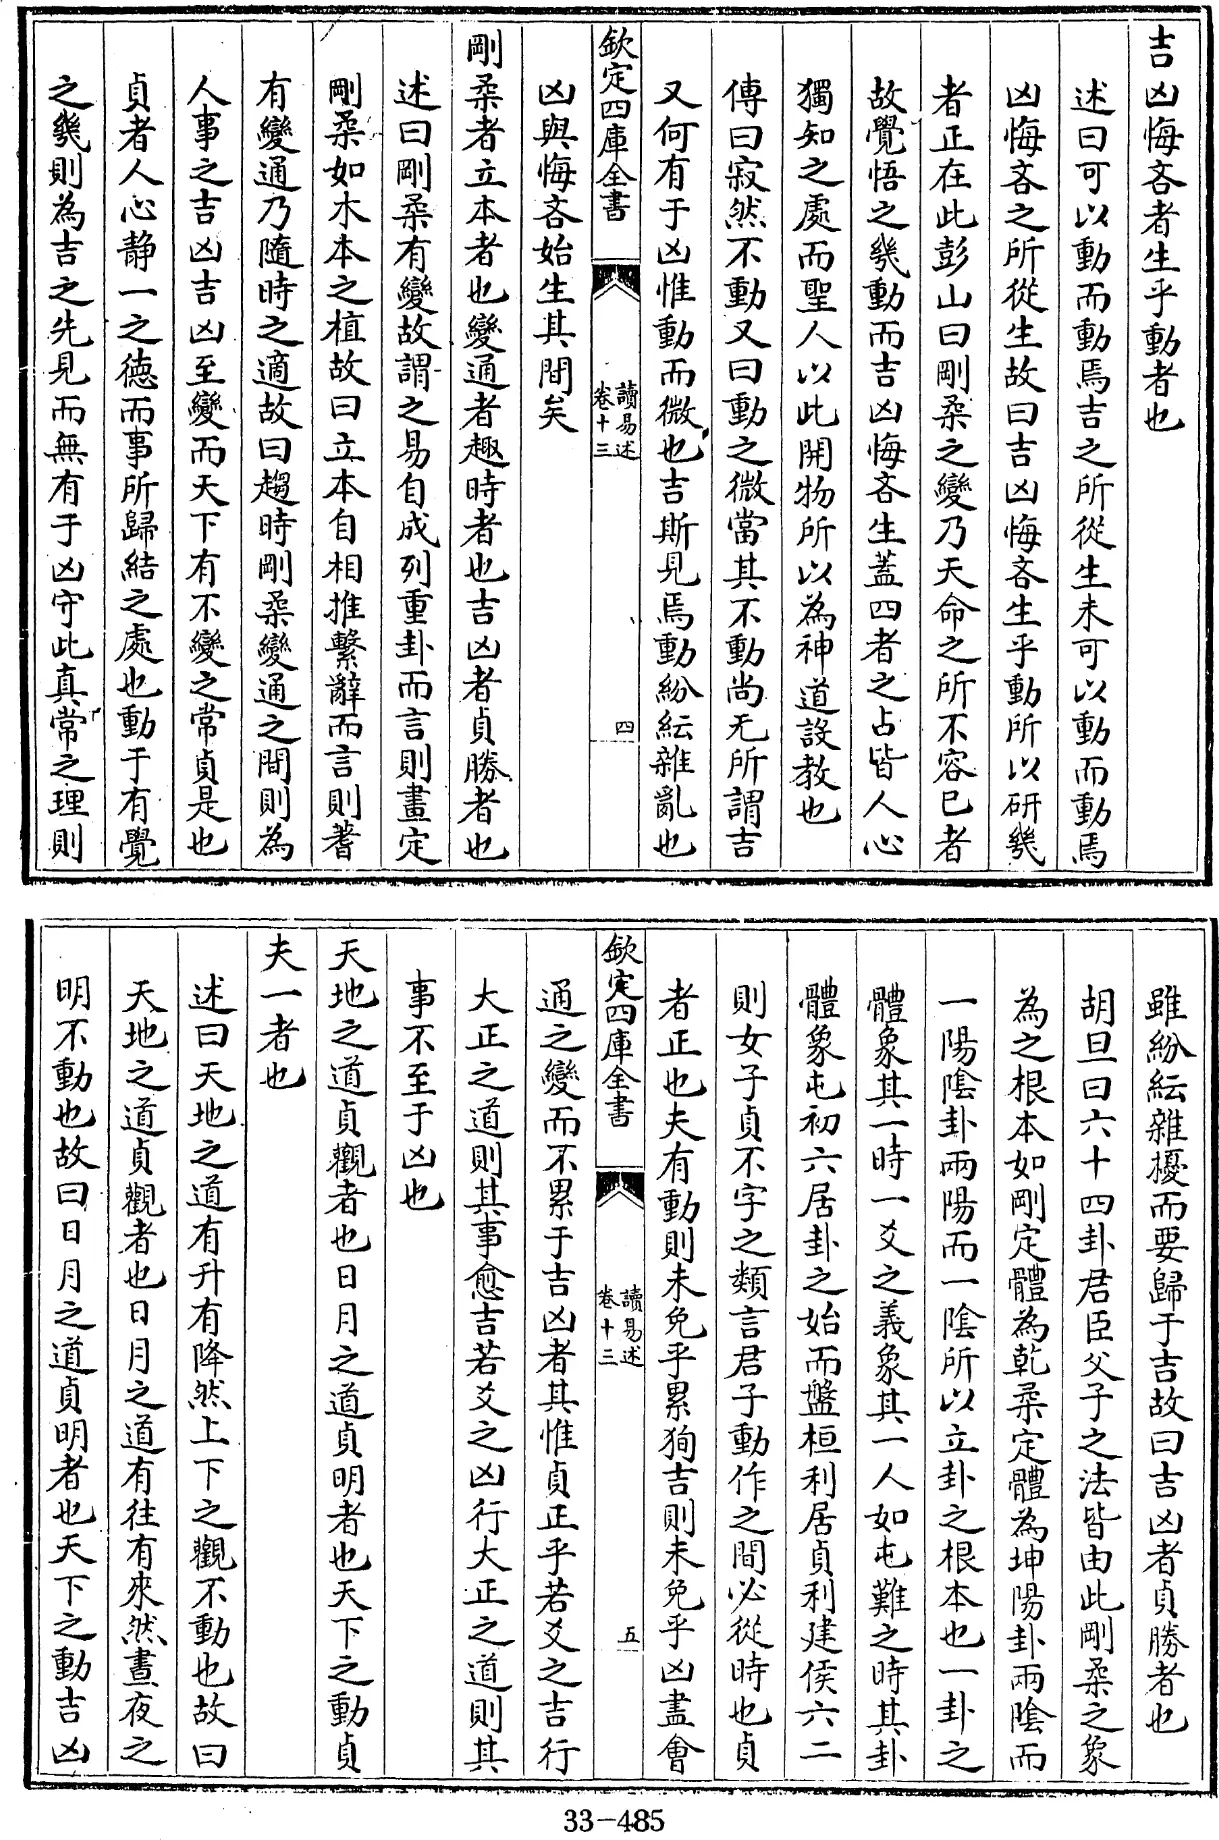 吉凶悔吝者生乎動者也
述曰可以動而動焉吉之所從生未可以動而動焉
凶悔吝之所從生故曰吉凶悔吝生乎動所以研幾
者正在此彭山曰剛柔之變乃天命之所不容已者
故覺悟之幾動而吉凶悔吝生蓋四者之占皆人心
獨知之處而聖人以此開物所以為神道設教也
傳曰寂然不動又曰動之微當其不動尚无所謂吉
又何有于凶惟動而微也吉斯見焉動紛紜雜亂也
欽定四庫全書
讀易述
卷十三
四
凶與悔吝始生其間矣
剛柔者立本者也變通者趣時者也吉凶者貞勝者也
述曰剛柔有變故謂之易自成列重卦而言則畫定
剛柔如木本之植故曰立本自相推繫辭而言則蓍
有變通乃隨時之適故曰趨時剛柔變通之間則為
人事之吉凶吉凶至變而天下有不變之常貞是也
貞者人心靜一之德而事所歸結之處也動于有覺
之幾則為吉之先見而無有于凶守此真常之理則
雖紛紜雜擾而要歸于吉故曰吉凶者貞勝者也
胡旦曰六十四卦君臣父子之法皆由此剛柔之象
為之根本如剛定體為乾柔定體為坤陽卦兩陰而
一陽陰卦兩陽而一陰所以立卦之根本也一卦之
體象其一時一爻之義象其一人如屯難之時其卦
體象屯初六居卦之始而盤桓利居貞利建侯六二
則女子貞不字之類言君子動作之間必從時也貞
者正也夫有動則未免乎累狥吉則未免乎凶盡會
欽定四庫全書
讀易述
卷十三
五
通之變而不累于吉凶者其惟貞正乎若爻之吉行
大正之道則其事愈吉若爻之凶行大正之道則其
事不至于凶也
天地之道貞觀者也日月之道貞明者也天下之動貞
夫一者也
述曰天地之道有升有降然上下之觀不動也故曰
天地之道貞觀者也日月之道有往有來然晝夜之
明不動也故曰日月之道貞明者也天下之動吉凶
33-485